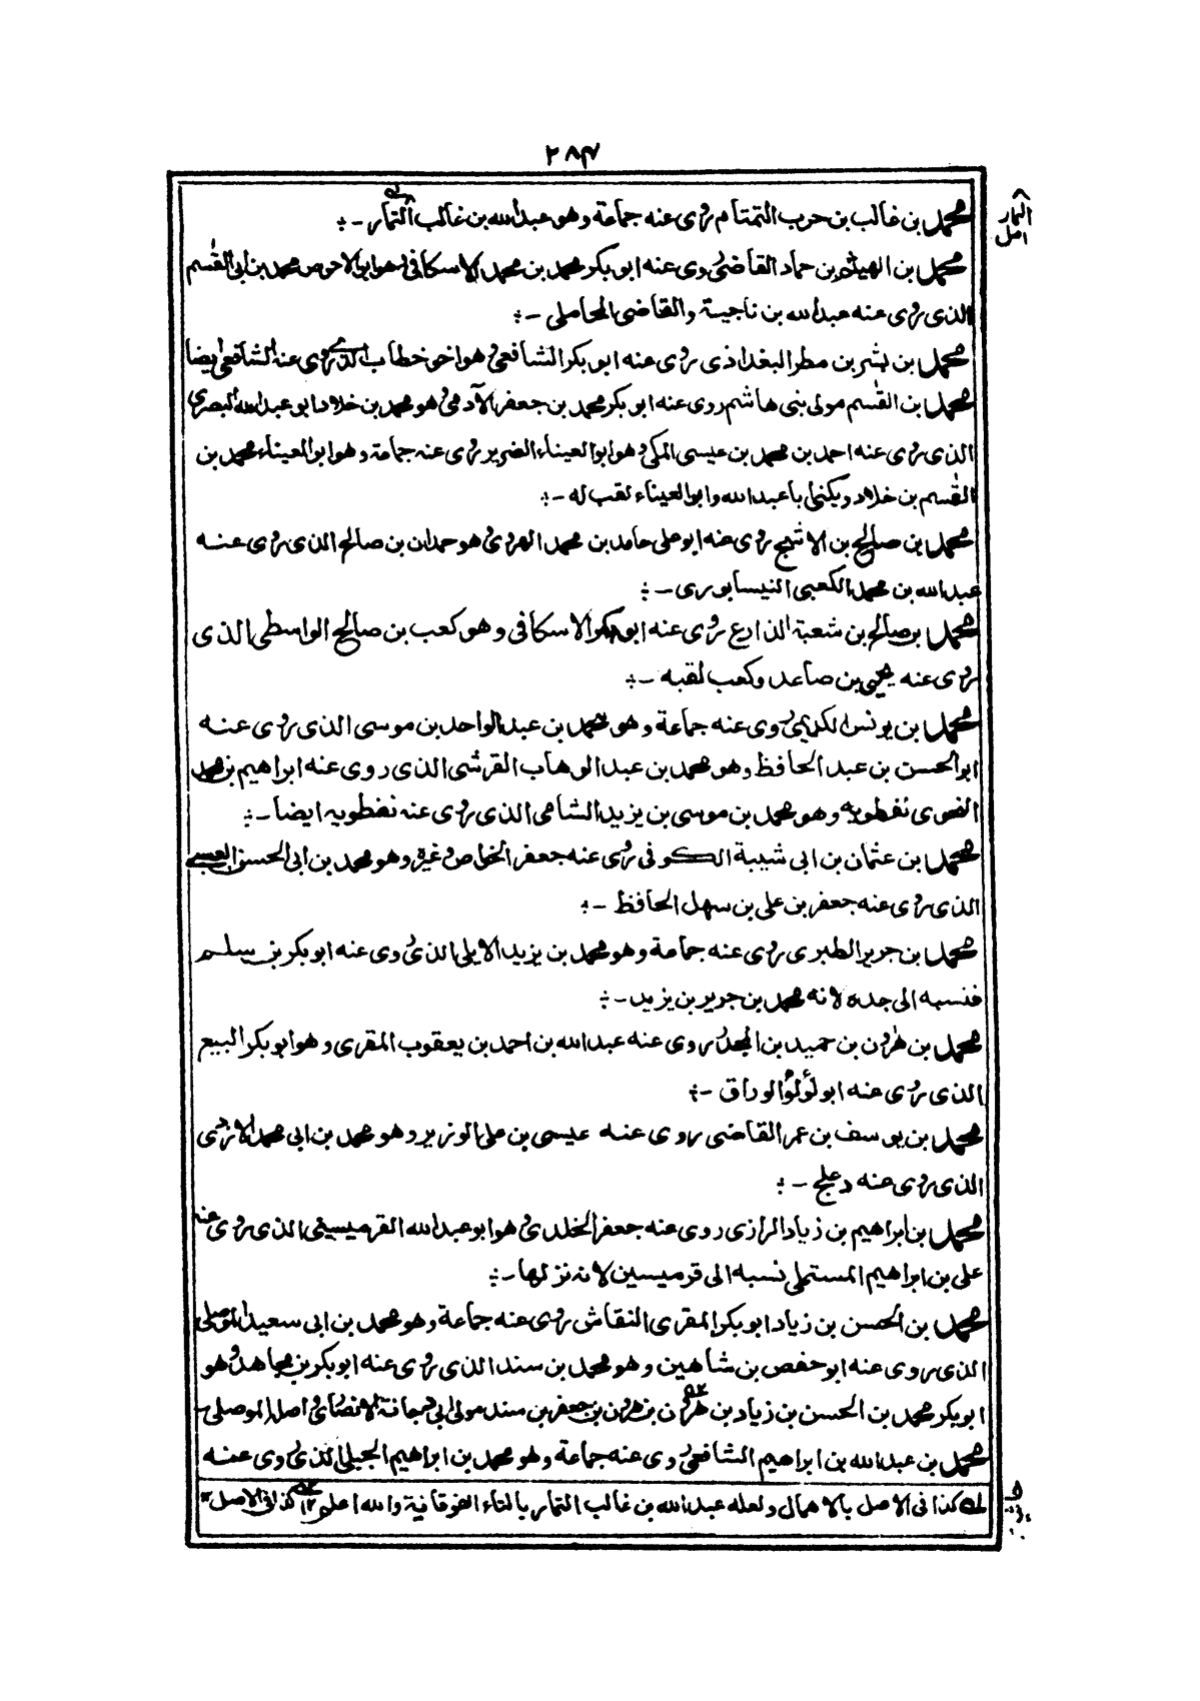 ٢٨٤
محمد بن غالب بن حرب التمتام روى عنه جماعة وهو عبدالله بن غالب التمار ـ:
محمد بن الهيثم بن حماد القاضى روى عنه ابو بكر محمد بن محمد الاسكافى وهو ابو الاحوص محمد بن ابى القٰسم
الذى روى عنه عبدالله بن ناجية والقاضى المحاملى ـ:
محمد بن بشر بن مطر البغداذى روى عنه ابو بكر الشافعى وهو اخو خطاب الذى روى عنه الشافعى ايضا
محمد بن القٰسم مولى بنى هاشم روى عنه ابو بكر محمد بن جعفر الآدمى وهو محمد بن خلاد ابو عبدالله البصرى
الذى روى عنه احمد بن محمد بن عيسى المكى وهو ابو العيناء الضرير روى عنه جماعة وهو ابو العيناء محمد بن
القٰسم بن خلاد ويكنى ابا عبدالله وابو العيناء لقب له ـ:
محمد بن صالح بن الاشج روى عنه ابو على حامد بن محمد الهروى وهو حمدان بن صالح الذى روى عنه
عبدالله بن محمد الكعبى النيسابورى ـ:
محمد بن صالح بن شعبة الذارع روى عنه ابو بكر الاسكافى وهو كعب بن صالح الواسطى الذى
روى عنه يحيى بن صاعد وكعب لقبه ـ:
محمد بن يونس الكديمى روى عنه جماعة وهو محمد بن عبد الواحد بن موسى الذى روى عنه
ابو الحسن بن عبد الحافظ وهو محمد بن عبد الوهاب القرشى الذى روى عنه ابراهيم بن محمد
النحوى نفطويه وهو محمد بن موسى بن يزيد الشامى الذى روى عنه نفطويه ايضا ـ:
محمد بن عثمان بن ابى شيبة الكوفى روى عنه جعفر الخواص وغيره وهو محمد بن ابى الحسن العبسى
الذى روى عنه جعفر بن على بن سهل الحافظ ـ:
محمد بن جرير الطبرى روى عنه جماعة وهو محمد بن يزيد الايلى الذى روى عنه ابو بكر بن سلم
فنسبه الى جده لانه محمد بن جرير بن يزيد ـ:
محمد بن هٰرون بن حميد بن المجدر روى عنه عبدالله بن احمد بن يعقوب المقرى وهو ابو بكر البيع
الذى روى عنه ابو لؤلؤ الوراق ـ:
محمد بن يوسف بن عمر القاضى روى عنه عيسى بن على الوزير وهو محمد بن ابى محمد الازدى
الذى روى عنه دعلج ـ:
محمد بن ابراهيم بن زياد الرازى روى عنه جعفر الخلدى وهو ابو عبدالله القرميسينى الذى روى عنه
على بن ابراهيم المستملى نسبه الى قرميسين لانه نزلها ـ:
محمد بن الحسن بن زياد ابو بكر المقرى النقاش روى عنه جماعة وهو محمد بن ابى سعيد الموصلى
الذى روى عنه ابو حفص بن شاهين وهو محمد بن سند الذى روى عنه ابو بكر بن مجاهد وهو
ابو بكر محمد بن الحسن بن زياد بن هٰرون بن جعفر بن سند مولى ابى دجانة الانصارى اصله الموصلى ـ
محمد بن عبدالله بن ابراهيم الشافعى روى عنه جماعة وهو محمد بن ابراهيم الجبلى الذى روى عنه
له كذا فى الاصل بالاهمال ولعله عبدالله بن غالب التمار بالتاء الفوقانية والله اعلم ١٢ كذا فى الاصل ١٢
التمار
اصل